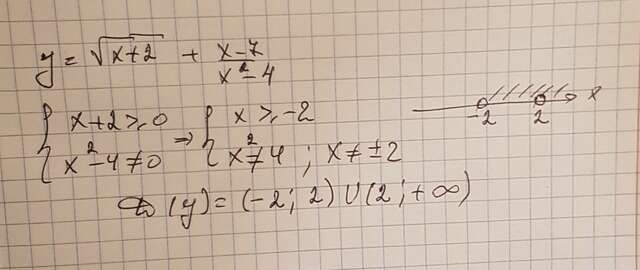 y = √(x+2) + (x-7)/(x²-4)
{ x+2 ≥ 0 ⇒ { x ≥ -2
{ x²-4 ≠ 0 { x² ≠ 4 ; x ≠ ±2
-2 2 x
(y) = (-2; 2) U (2; +∞)